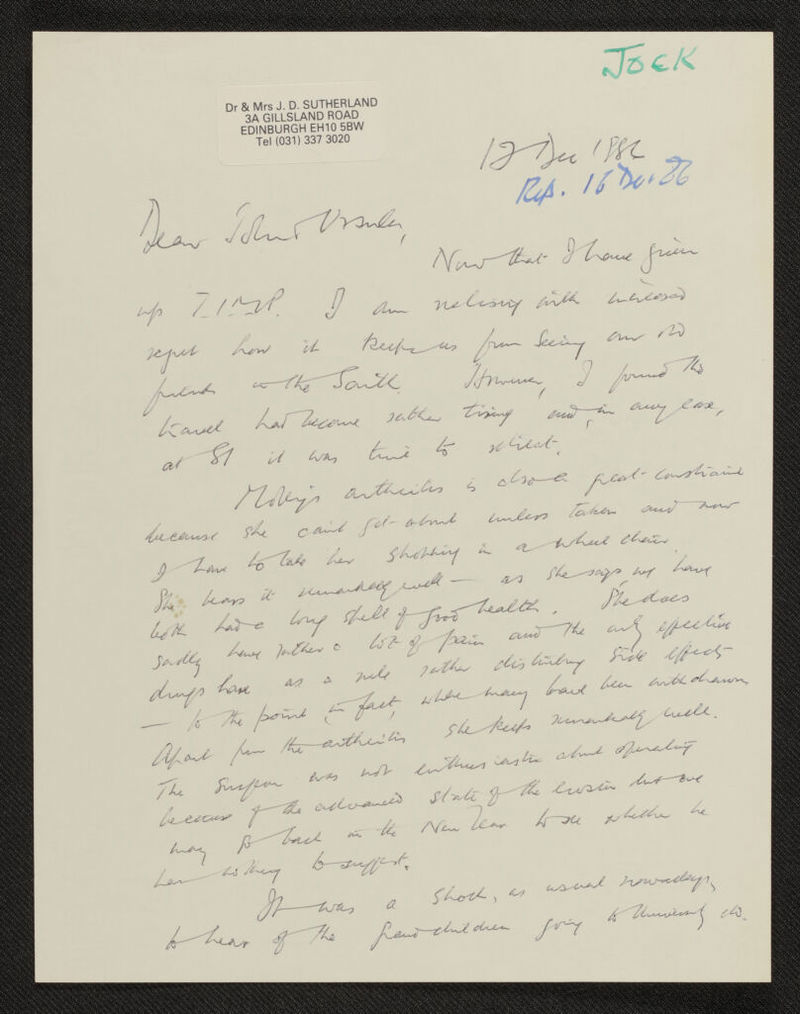 JOCK
Dr & Mrs J. D. SUTHERLAND
3A GILLSLAND ROAD
EDINBURGH EH10 5BW
Tel (031) 337 3020
12 Dec 1986
Rep. 16 Dec 86
Dear John & Ursula,
Now that I have given
up T.I.H.R. I am realising with increased
regret how it keeps us from seeing our old
friends in the South. However, I found the
travel had become rather tiring and, in any case,
at 81 it was time to retreat.
Molly's arthritis is also a great constraint
because she can't get about unless taken and now
I have to take her shopping in a wheel chair.
She bears it remarkably well — as she says we have
both had a long spell of good health. She does
sadly have rather a lot of pain and the only effective
drugs have as a rule rather disturbing side effects
— to the point, in fact, where many have been withdrawn
Apart from the arthritis she keeps remarkably well.
The surgeon was not enthusiastic about operating
because of the advanced state of the erosion but we
may go back in the New Year to see whether he
has anything to suggest.
It was a shock, as usual nowadays,
to hear of the grandchildren going to University etc.